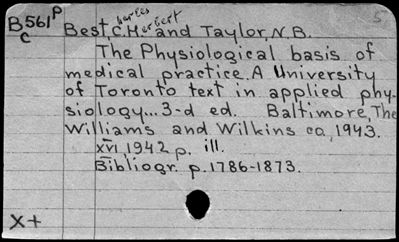 5
B561p
C
Charles Herbert
Best, C.H. and Taylor, N.B.
The Physiological basis of
medical practice. A University
of Toronto text in applied phy-
siology... 3-d ed. Baltimore, The
Williams and Wilkins co, 1943.
XVI, 1942 p. ill.
Bibliogr. p. 1786-1873.
X+